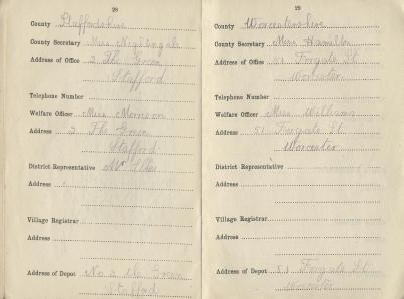 28
County Staffordshire
County Secretary Miss Nightingale
Address of Office 3 The Green
Stafford
Telephone Number
Welfare Officer Miss Morrison
Address 3 The Green
Stafford
District Representative Mr
Address
Village Registrar
Address
Address of Depot No 3 The Green
Stafford
29
County Worcestershire
County Secretary Miss Hamilton
Address of Office 51 Foregate St
Worcester
Telephone Number
Welfare Officer Miss Williams
Address 51 Foregate St
Worcester
District Representative
Address
Village Registrar
Address
Address of Depot 51 Foregate St
Worcester